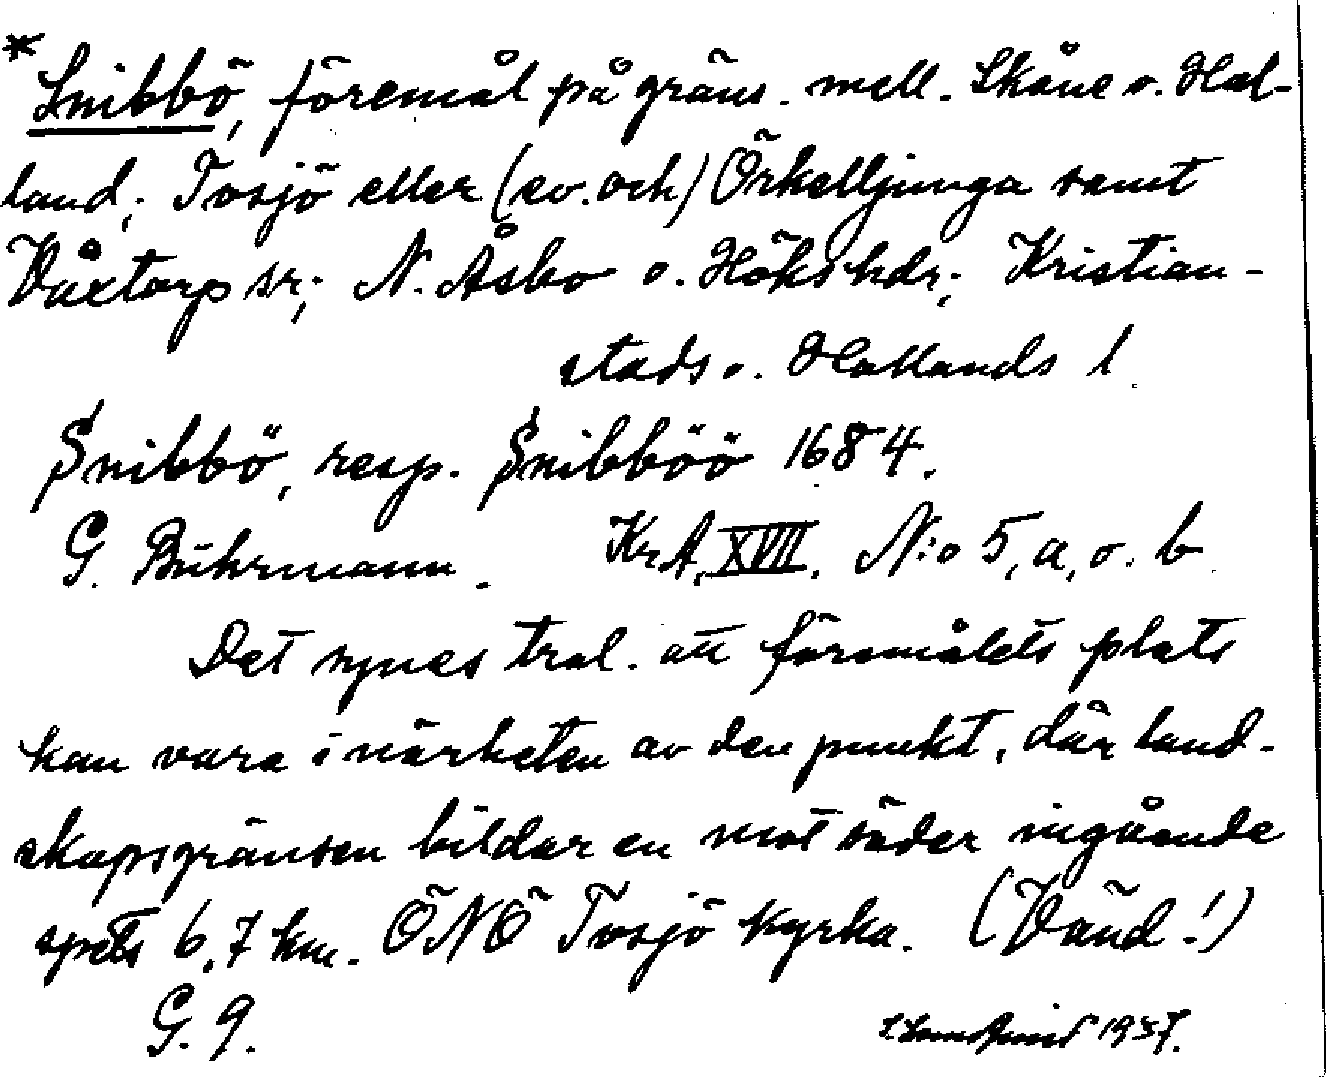 * Snibbö, föremål på gräns. mell. Skåne o. Hal-
land; Tosjö eller (ev. och) Örkelljunga samt
Våxtorp sr; N. Åsbo o. Höks hdr; Kristian-
stads o. Hallands l.
Snibbö, resp. Snibböö 1684.
G. Buhrmann. KrA, XVII, N:o 5, a, o. b
Det synes trol. att föremålets plats
kan vara i närheten av den punkt, där land-
skapsgränsen bildar en mot söder ingående
spets 6,7 km. ÖNÖ Tosjö kyrka. (Vänd!)
G. 9.
1937.